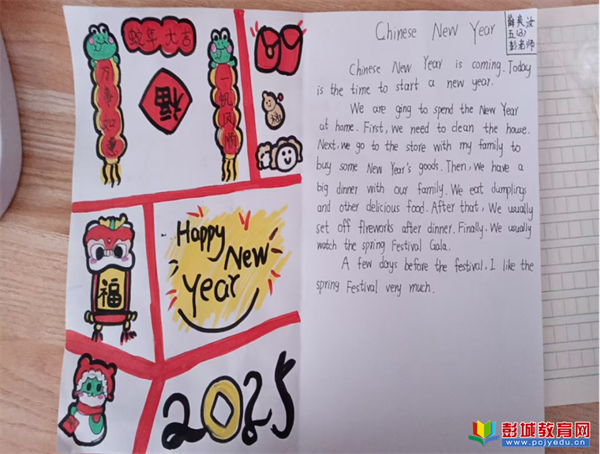 蛇年大吉
万事如意
福
一帆风顺
福
Happy
New
Year
2025
Chinese New Year
薛奕汝
五(3)
彭老师
Chinese New Year is coming. Today
is the time to start a new year.
We are ging to spend the New Year
at home. First, we need to clean the house.
Next, we go to the store with my family to
buy some New Year's goods. Then, We have a
big dinner with our family. We eat dumplings
and other delicious food. After that, We usually
set off fireworks after dinner. Finally. We usually
watch the spring Festival Gala.
A few days before the festival, I like the
spring Festival very much.
彭城教育网
www.pcjyedu.cn